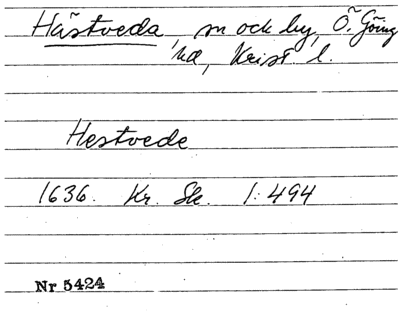 Hästveda, sn ock by, Ö. Göing
hd, Krist l.
Hestvede
1636. Kr. Sk. 1:494
Nr 5424